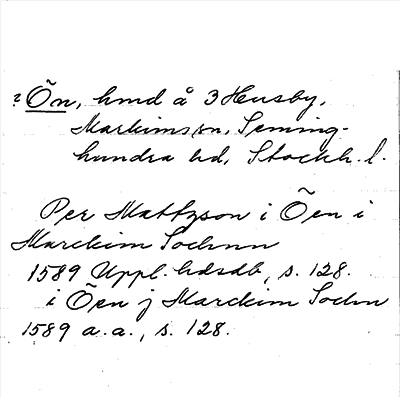 ? Õn, hmd å 3 Husby,
Markims sn, Seming-
hundra hd, Stockh. l.
Per Mattzson i Õen i
Marckim Sochnn
1589 Uppl. hdsdb, s. 128.
i Õen j Marckim Sochn
1589 a.a., s. 128.